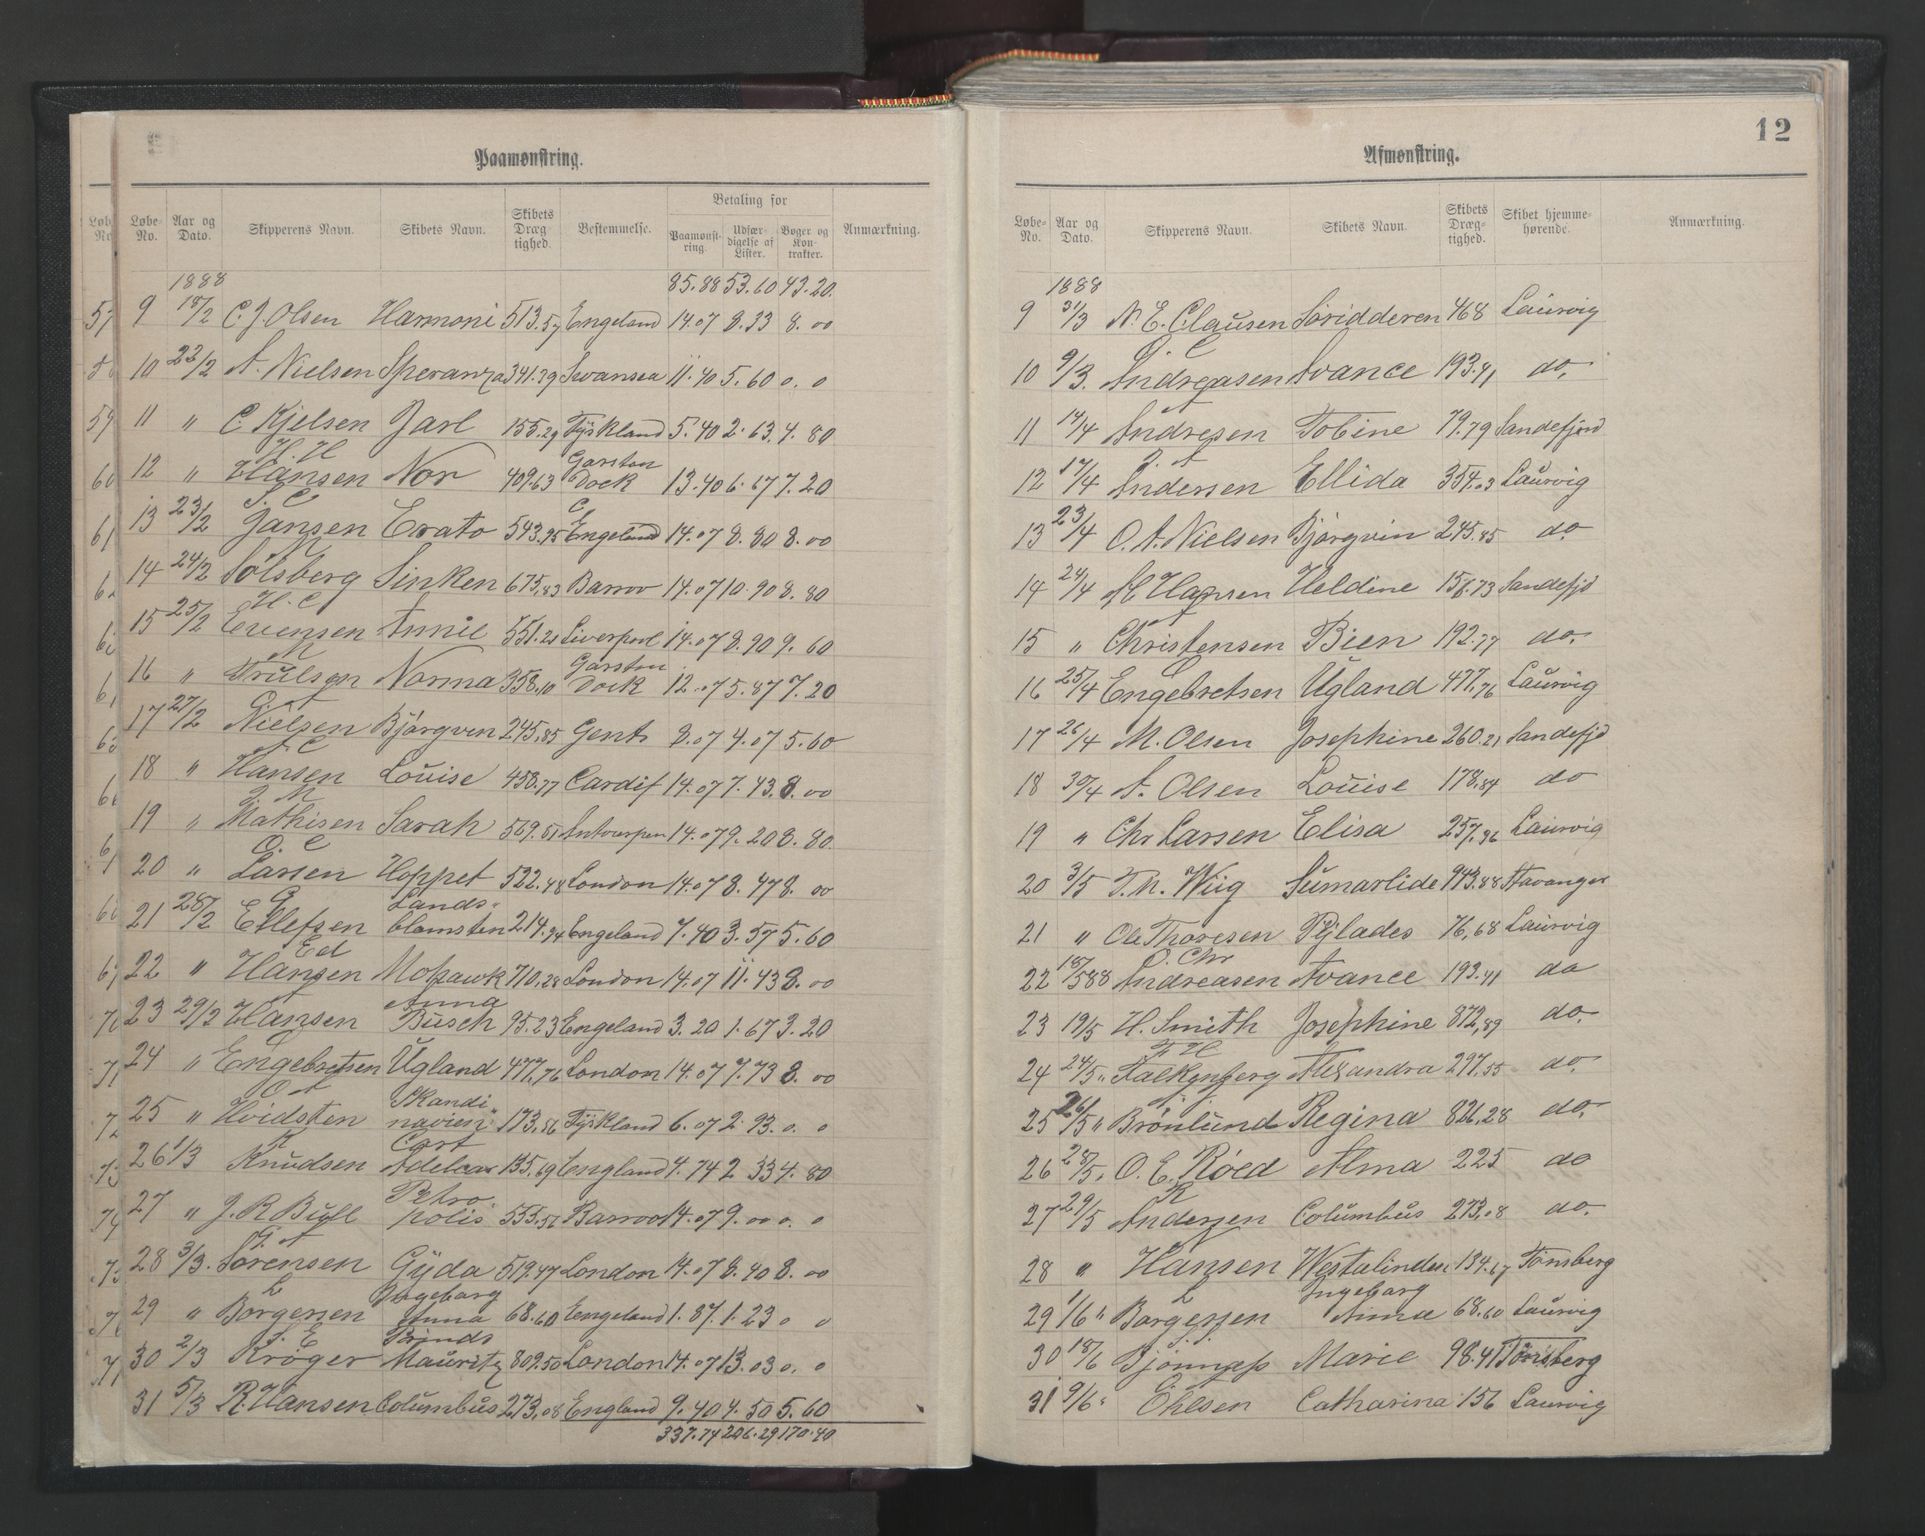 Paamønstring.
Løbe-No. Aar og Dato. Skipperens Navn. Skibets Navn. Skibets Dræg-tighed. Bestemmelse. Betaling for Paamønst-ring. Udfær-digelse af Lister. Bøger og Kon-trakter. Anmærkning.
1888 85.88 53.60 43.20.
9 18/2 C. J. Olsen Harmoni 513.57 Engeland 14.07 8.33 8.00
10 22/2 A. Nielsen Speranza 341.39 Swansea 11.40 5.60 0.0
11 " C. Kjelsen Jarl 155.29 Tÿskland 5.40 2.63 4.80
12 " H. H Hansen Nor 409.63 Garston Dock 13.40 6.67 7.20
13 23/2 S. C Jansen Erato 543.95 Engeland 14.07 8.80 8.00
14 24/2 M Sølsberg Sinken 675.83 Barrow 14.07 10.90 8.80
15 25/2 H. C Evensen Annie 551.21 Liverpool 14.07 8.90 9.60
16 " M Trulsen Norma 358.10 Garston Dock 12.07 5.87 7.20
17 27/2 O. A Nielsen Bjørgvin 245.85 Gent 8.07 4.07 5.60
18 " A. C Hansen Louise 458.77 Cardif 14.07 7.43 8.00
19 " J. M Mathisen Sarah 569.51 Antverpen 14.07 9.20 8.80.
20 " O. C Larsen Hoppet 522.48 London 14.07 8.47 8.00
21 28/2 G Ellefsen Lands-blomsten 214.94 Engeland 7.40 3.57 5.60
22 " Ed Hansen Mohawk 710.28 London 14.07 11.43 8.00
23 29/2 Hansen Anna Busch 95.23 Engeland 3.20 1.67 3.20
24 " Engebretsen Ugland 477.76 London 14.07 7.73 8.00
25 " O A Hvidsten Skandi"navien 173.56 Tÿskland 6.07 2.93 0.0
26 1/3 K Knudsen Cort Adelaer 135.69 England 4.74 2 33 4.80
27 " J. R Bull Petropolis 555.51 Barrow 14.07 9.00 0.0
28 3/3. G. A Sørensen Gÿda 519.47 London 14.07 8.40 8.00
29 " L Børgersen Ingeborg Anna 68.60 Engeland 1.87 1.23 0 0
30 2/3 S. E Krøger Prinds Mauritz 809.50 London 14.07 13.03 0.0
31 5/3 R. Hansen Columbus 273.08 England 9.40 4.50 5.60
337.74 206.29 170.40
12
Afmønstring.
Løbe-No. Aar og Dato. Skipperens Navn. Skibets Navn. Skibets Dræg-tighed. Skibet hjemme-hørende. Anmærkning.
1888
9 31/3 N. E. Clausen Søridderen 468 Laurvig
10 9/3. O. C Andreasen Avance 193.41 do,
11 14/4 A Andresen Tobine 79.79 Sandefjord
12 17/4 J. A Andersen Ellida 354.03 Laurvig
13 23/4 O. A. Nielsen Bjørgvin 245.85 do
14 24/4 M Hansen Heldine 156.73 Sandefjd
15 " Christensen Bien 192.77 do.
16 25/4 Engebretsen Ugland 477.76 Laurvig
17 26/4 M. Olsen Josephine 260.21 Sandefjd
18 30/4 A. Olsen Louise 178.84 do
19 " Chr Larsen Elisa 257.36 Laurvig
20 3/5 T. M. Wiig Sumarlide 943.88 Stavanger
21 " Ole Thoresen Pÿlades 76,68 Laurvig
22 18/5 88 O. Chr Andreasen Avance 193.41 do
23 19/5 H. Smith Josephine 872,89 do.
24 24/5 " F H Falkenberg Alexandra 297.55 do.
25 26/5 " Brønlund Regina 826,28 do.
26 28/5 " O. E. Røed Alma 225 do
27 29/5 R Andersen Columbus 273.08 do.
28 " Hansen Westalinden 134.67 Tønsberg
29 1/6 " L Børgersen Ingeborg Anna 68.60 Laurvig
30 18/6 Bjønnæss Marie 98.41 Tønsberg
31 9/6 " Ohlsen Catharina 156 Laurvig